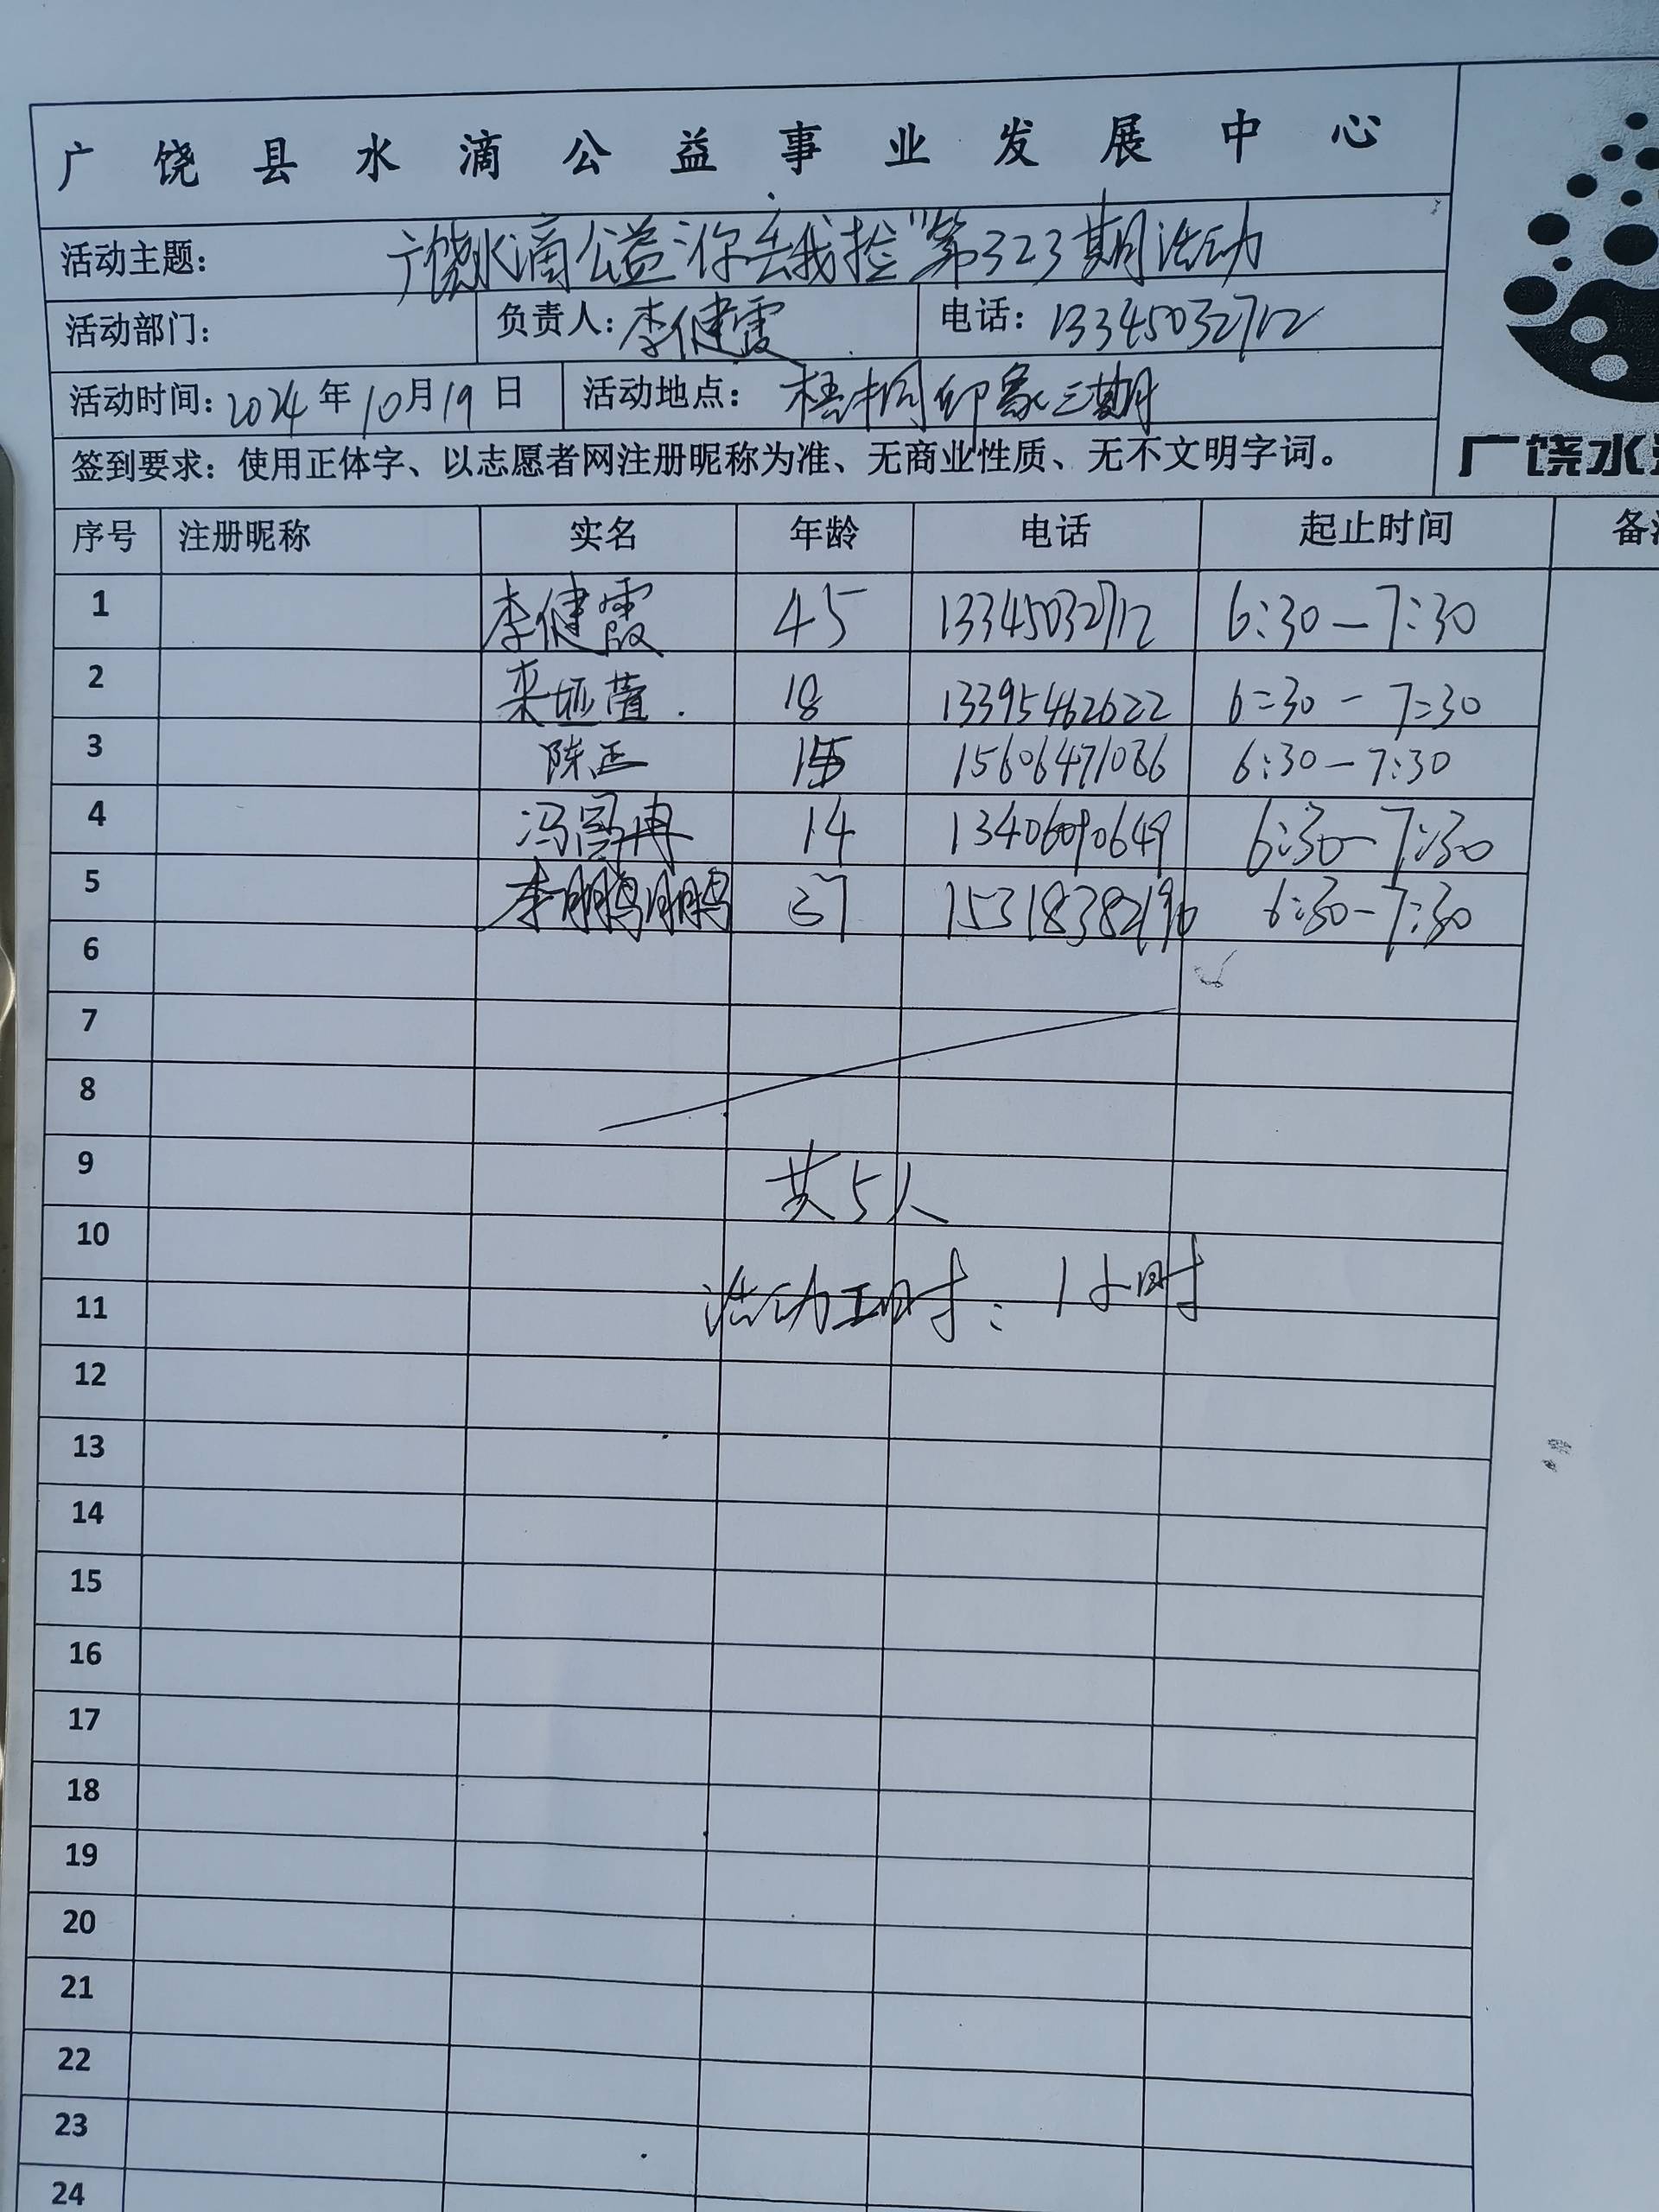 广饶县水滴公益事业发展中心
活动主题：广饶水滴公益“你丢我捡”第323期活动
活动部门： 负责人：李健霞 电话：13345032712
活动时间：2024年10月19日 活动地点：梧桐印象三期
签到要求：使用正体字、以志愿者网注册昵称为准、无商业性质、无不文明字词。
广饶水
序号 注册昵称 实名 年龄 电话 起止时间 备
1 李健霞 45 13345032712 6:30—7:30
2 18 13395462622 6:30-7:30
3 陈正 15 15606471086 6:30—7:30
4 14 13406090649 6:30-7:30
5 李鹏鹏 37 15318382196 6:30-7:30
6
7
8
9 共5人
10
活动工时：1小时
11
12
13
14
15
16
17
18
19
20
21
22
23
24